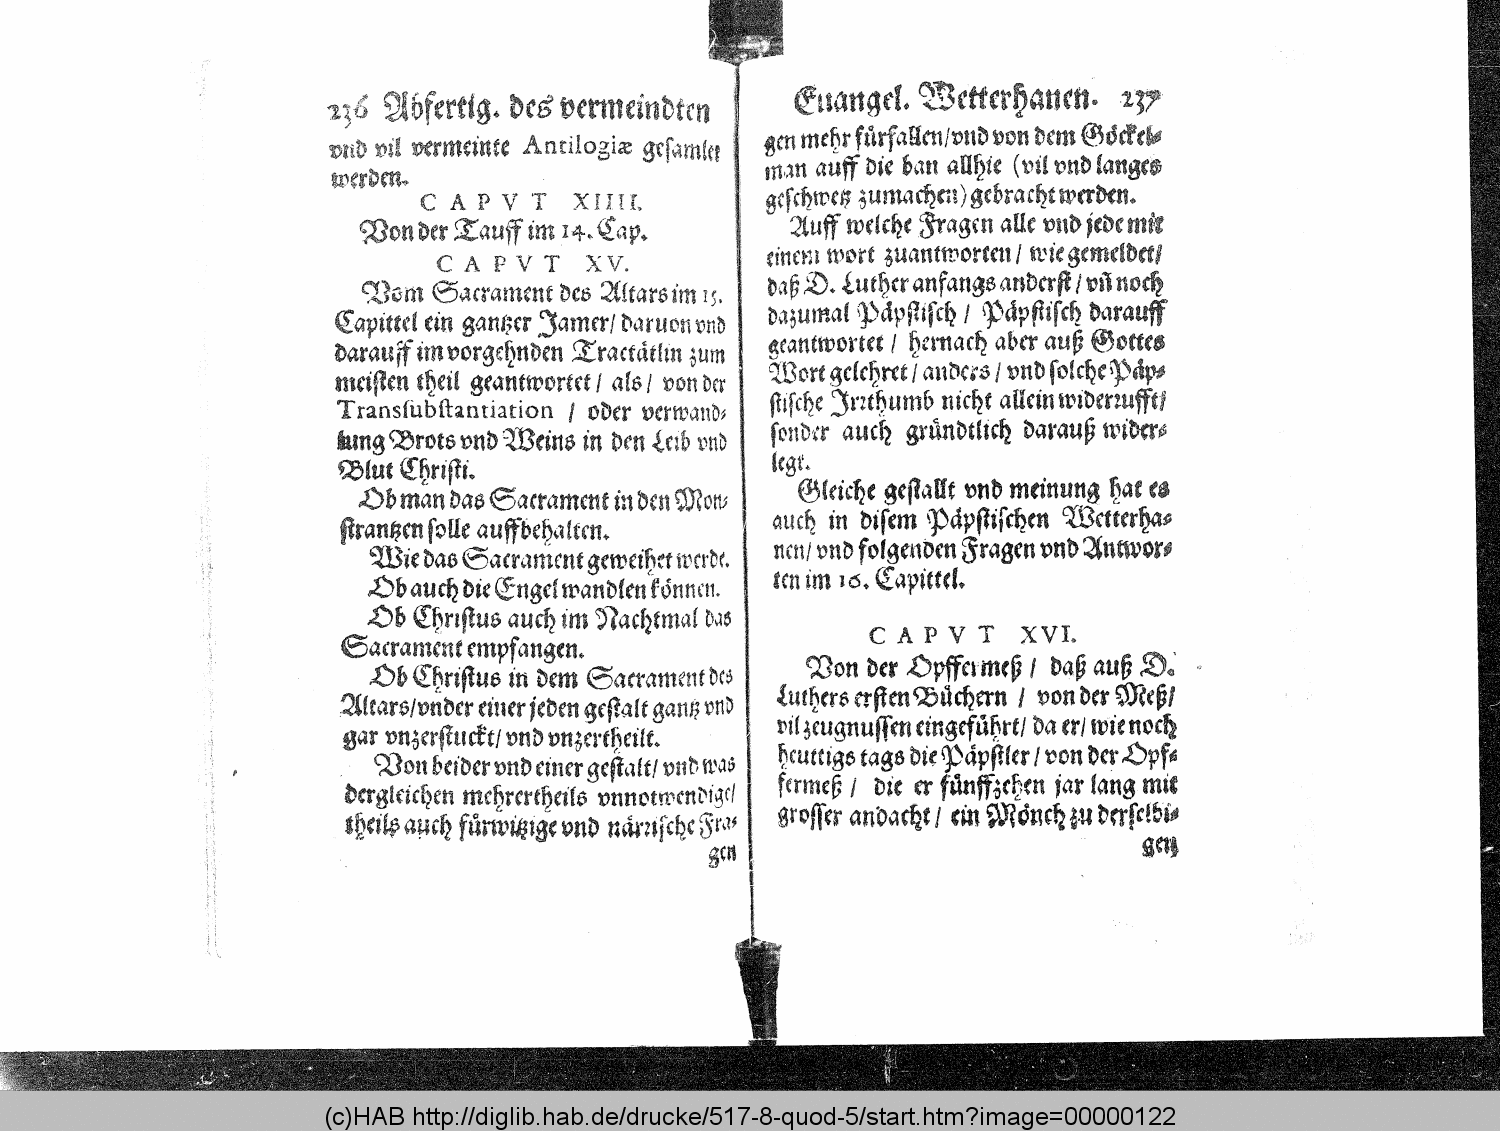 236 Abfertig. des vermeindten
vnd vil vermeinte Antilogiæ gesamlet
werden.
CAPVT XIIII.
Von der Tauff im 14. Cap.
CAPVT XV.
Vom Sacrament des Altars im 15.
Capittel ein gantzer Jamer/ daruon vnd
darauff im vorgehnden Tractätlin zum
meisten theil geantwortet/ als/ von der
Transsubstantiation / oder verwand-
lung Brots vnd Weins in den Leib vnd
Blut Christi.
Ob man das Sacrament in den Mon-
strantzen solle auffbehalten.
Wie das Sacrament geweihet werde.
Ob auch die Engel wandlen können.
Ob Christus auch im Nachtmal das
Sacrament empfangen.
Ob Christus in dem Sacrament des
Altars/vnder einer jeden gestalt gantz vnd
gar vnzerstuckt/ vnd vnzertheilt.
Von beider vnd einer gestalt/ vnd was
dergleichen mehrertheils vnnotwendige/
theils auch fürwitzige vnd närrische Fra-
gen
Euangel. Wetterhanen. 237
gen mehr fürfallen/vnd von dem Göckel-
man auff die ban allhie (vil vnd langes
geschwetz zumachen) gebracht werden.
Auff welche Fragen alle vnd jede mit
einem wort zuantworten/ wie gemeldet/
daß D. Luther anfangs anderst/ vñ noch
dazumal Päpstisch / Päpstisch darauff
geantwortet / hernach aber auß Gottes
Wort gelehret/ anders/ vnd solche Päp-
stische Irrthumb nicht allein widerrufft/
sonder auch gründtlich darauß wider-
legt.
Gleiche gestallt vnd meinung hat es
auch in disem Päpstischen Wetterha-
nen/ vnd folgenden Fragen vnd Antwor-
ten im 16. Capittel.
CAPVT XVI.
Von der Opffermeß / daß auß D.
Luthers ersten Büchern / von der Meß/
vil zeugnussen eingeführt/ da er/ wie noch
heuttigs tags die Päpstler/ von der Opf-
fermeß / die er fünffzehen jar lang mit
grosser andacht/ ein Mönch zu derselbi-
gen
(c)HAB http://diglib.hab.de/drucke/517-8-quod-5/start.htm?image=00000122